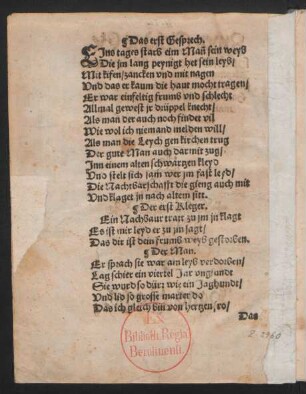 ¶ Das erst Gesprech.
Eins tages starb eim Mañ sein weyb
Die jm lang peynigt het sein leyb/
Mit kifen/zancken vnd mit nagen
Vnd das er kaum die haut mocht tragen/
Er war einfeltig frumb vnd schlecht
Allmal gewest jr drüppel knecht/
Als man der auch noch finder vil
Wie wol ich niemand melden will/
Als man die Leych gen kirchen trug
Der gute Man auch darmit zug/
Inn einem alten schwartzen kleyd
Vnd stelt sich sam wer jm fast leyd/
Die Nachtbarschafft die gieng auch mit
Vnd klaget jn nach altem sitt.
¶ Der erst Kleger.
Ein Nachbaur trat zu jm jn klagt
Es ist mir leyd er zu jm sagt/
Das dir ist dein frumb weyb gestorben.
¶ Der Man.
Er sprach sie war am leyb verdorben/
Lag schier ein viertel Jar vngsundt
Sie wurd so dürr wie ein Jaghundt/
Vnd lid so grosse marter do
Das ich gleich bin von hertzen/ro/
Das
Ex
Biblioth. Regia
Berolinensi.